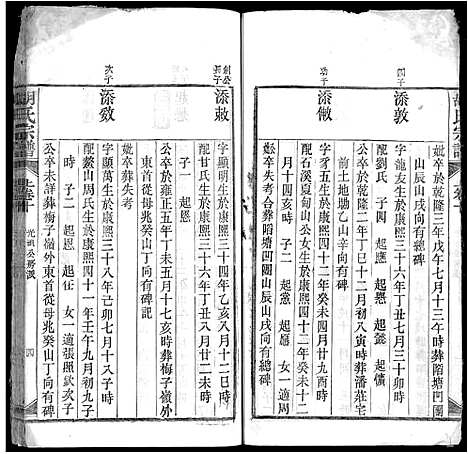 胡氏宗譜
卷十
妣卒於乾隆三年戊午七月十三時葬陷塘凹圓
山辰山戌向有總碑
四子
添敦
字龍友生於康熙三十六年丁丑七月三十卯時
配劉氏 子四 起應 起懋 起懿 起儣
公卒於乾隆二十二年丁巳十二月初八寅時葬潘莊宅
前土地塅乙山辛向有碑
功子
添儌
字爻五生於康熙三十六年丁丑八月廿二未時
配石溪夏甸山公女生於康熙四十二年癸未四月廿九酉時
月十四時 子二 起黨 起嵬 女一適周
妣卒失考合葬陷塘凹圓山辰山戌向有總碑
創公
長子
添敕
字顯明生於康熙三十四年乙亥八月十二日時
公卒於雍正五年丁未五月十七亥時葬梅子嶺外
東首從母兆癸山丁向有碑記
子一 起恩
妣卒葬失考
次子
添斆
字 生於康熙三十八年己卯七月十八子時
配藜山周氏生於康熙四十一年壬午九月初九子
時 子二 起恩 起任 女一適張照欽次子
公卒未詳葬梅子嶺外東首從母兆癸山丁向有碑
胡氏宗譜
卷十
光祖公房派
四